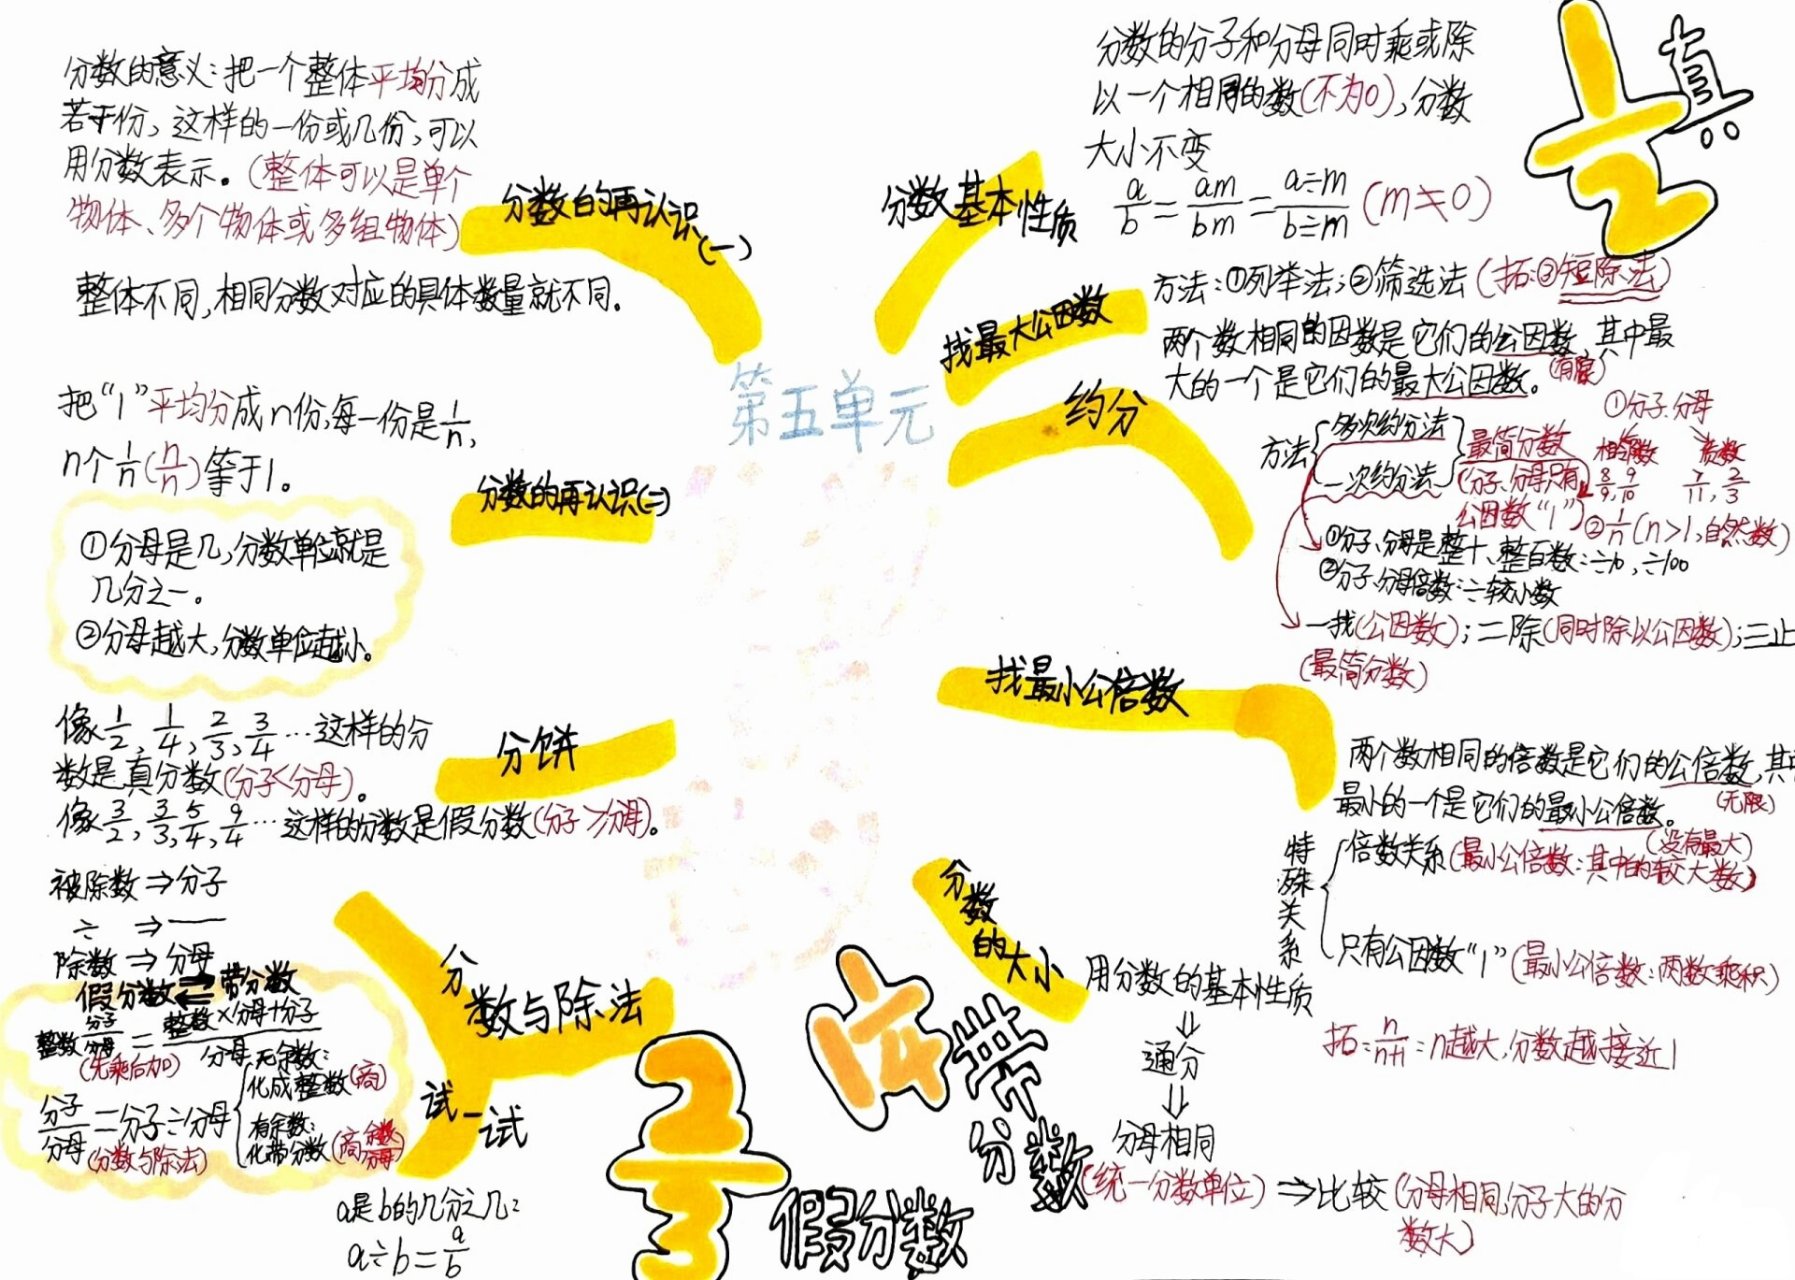 分数的意义:把一个整体平均分成
若干份,这样的一份或几份,可以
用分数表示。(整体可以是单个
物体、多个物体或多组物体)
整体不同,相同分数对应的具体数量就不同。
分数的再认识(一)
把“1”平均分成n份,每一份是1/n,
n个1/n(n/n)等于1。
分数的再认识(二)
①分母是几,分数单位就是
几分之一。
②分母越大,分数单位越小。
像1/2,1/4,2/3,3/4…这样的分
数是真分数(分子<分母)。
像3/2,3/3,5/4,9/4…这样的分数是假分数(分子≥分母)。
分饼
被除数⇒分子
÷ ⇒ —
除数⇒分母
假分数⇄带分数
整数分子/分母=整数×分母+分子/分母
(先乘后加)
分子/分母=分子÷分母
(分数与除法)
无余数:
化成整数(商)
有余数:
化带分数(商余数/分母)
分数与除法
试一试
a是b的几分之几:
a÷b=a/b
第五单元
分数基本性质
分数的分子和分母同时乘或除
以一个相同的数(不为0),分数
大小不变
a/b=am/bm=a÷m/b÷m(m≠0)
1/2
真
找最大公因数
方法:①列举法;②筛选法(拓:③短除法)
两个数相同的因数是它们的公因数,其中最
(有限)
大的一个是它们的最大公因数。
约分
方法
多次约分法
一次约分法
最简分数
(分子、分母只有
公因数“1”)
①分子、分母
相邻数 质数
8/9,9/10 7/11,2/3
②1/n(n>1,自然数)
①分子、分母是整十、整百数:÷10,÷100
②分子、分母倍数:÷较小数
一找(公因数);二除(同时除以公因数);三止
(最简分数)
找最小公倍数
两个数相同的倍数是它们的公倍数,其
(无限)
最小的一个是它们的最小公倍数。
(没有最大)
特殊关系
倍数关系(最小公倍数:其中的较大数)
只有公因数“1”(最小公倍数:两数乘积)
分数的大小
用分数的基本性质
⇓
通分
⇓
分母相同
(统一分数单位)⇒比较(分母相同,分子大的分
数大)
拓:n/n+1:n越大,分数越接近1
带分数
2/3
假分数